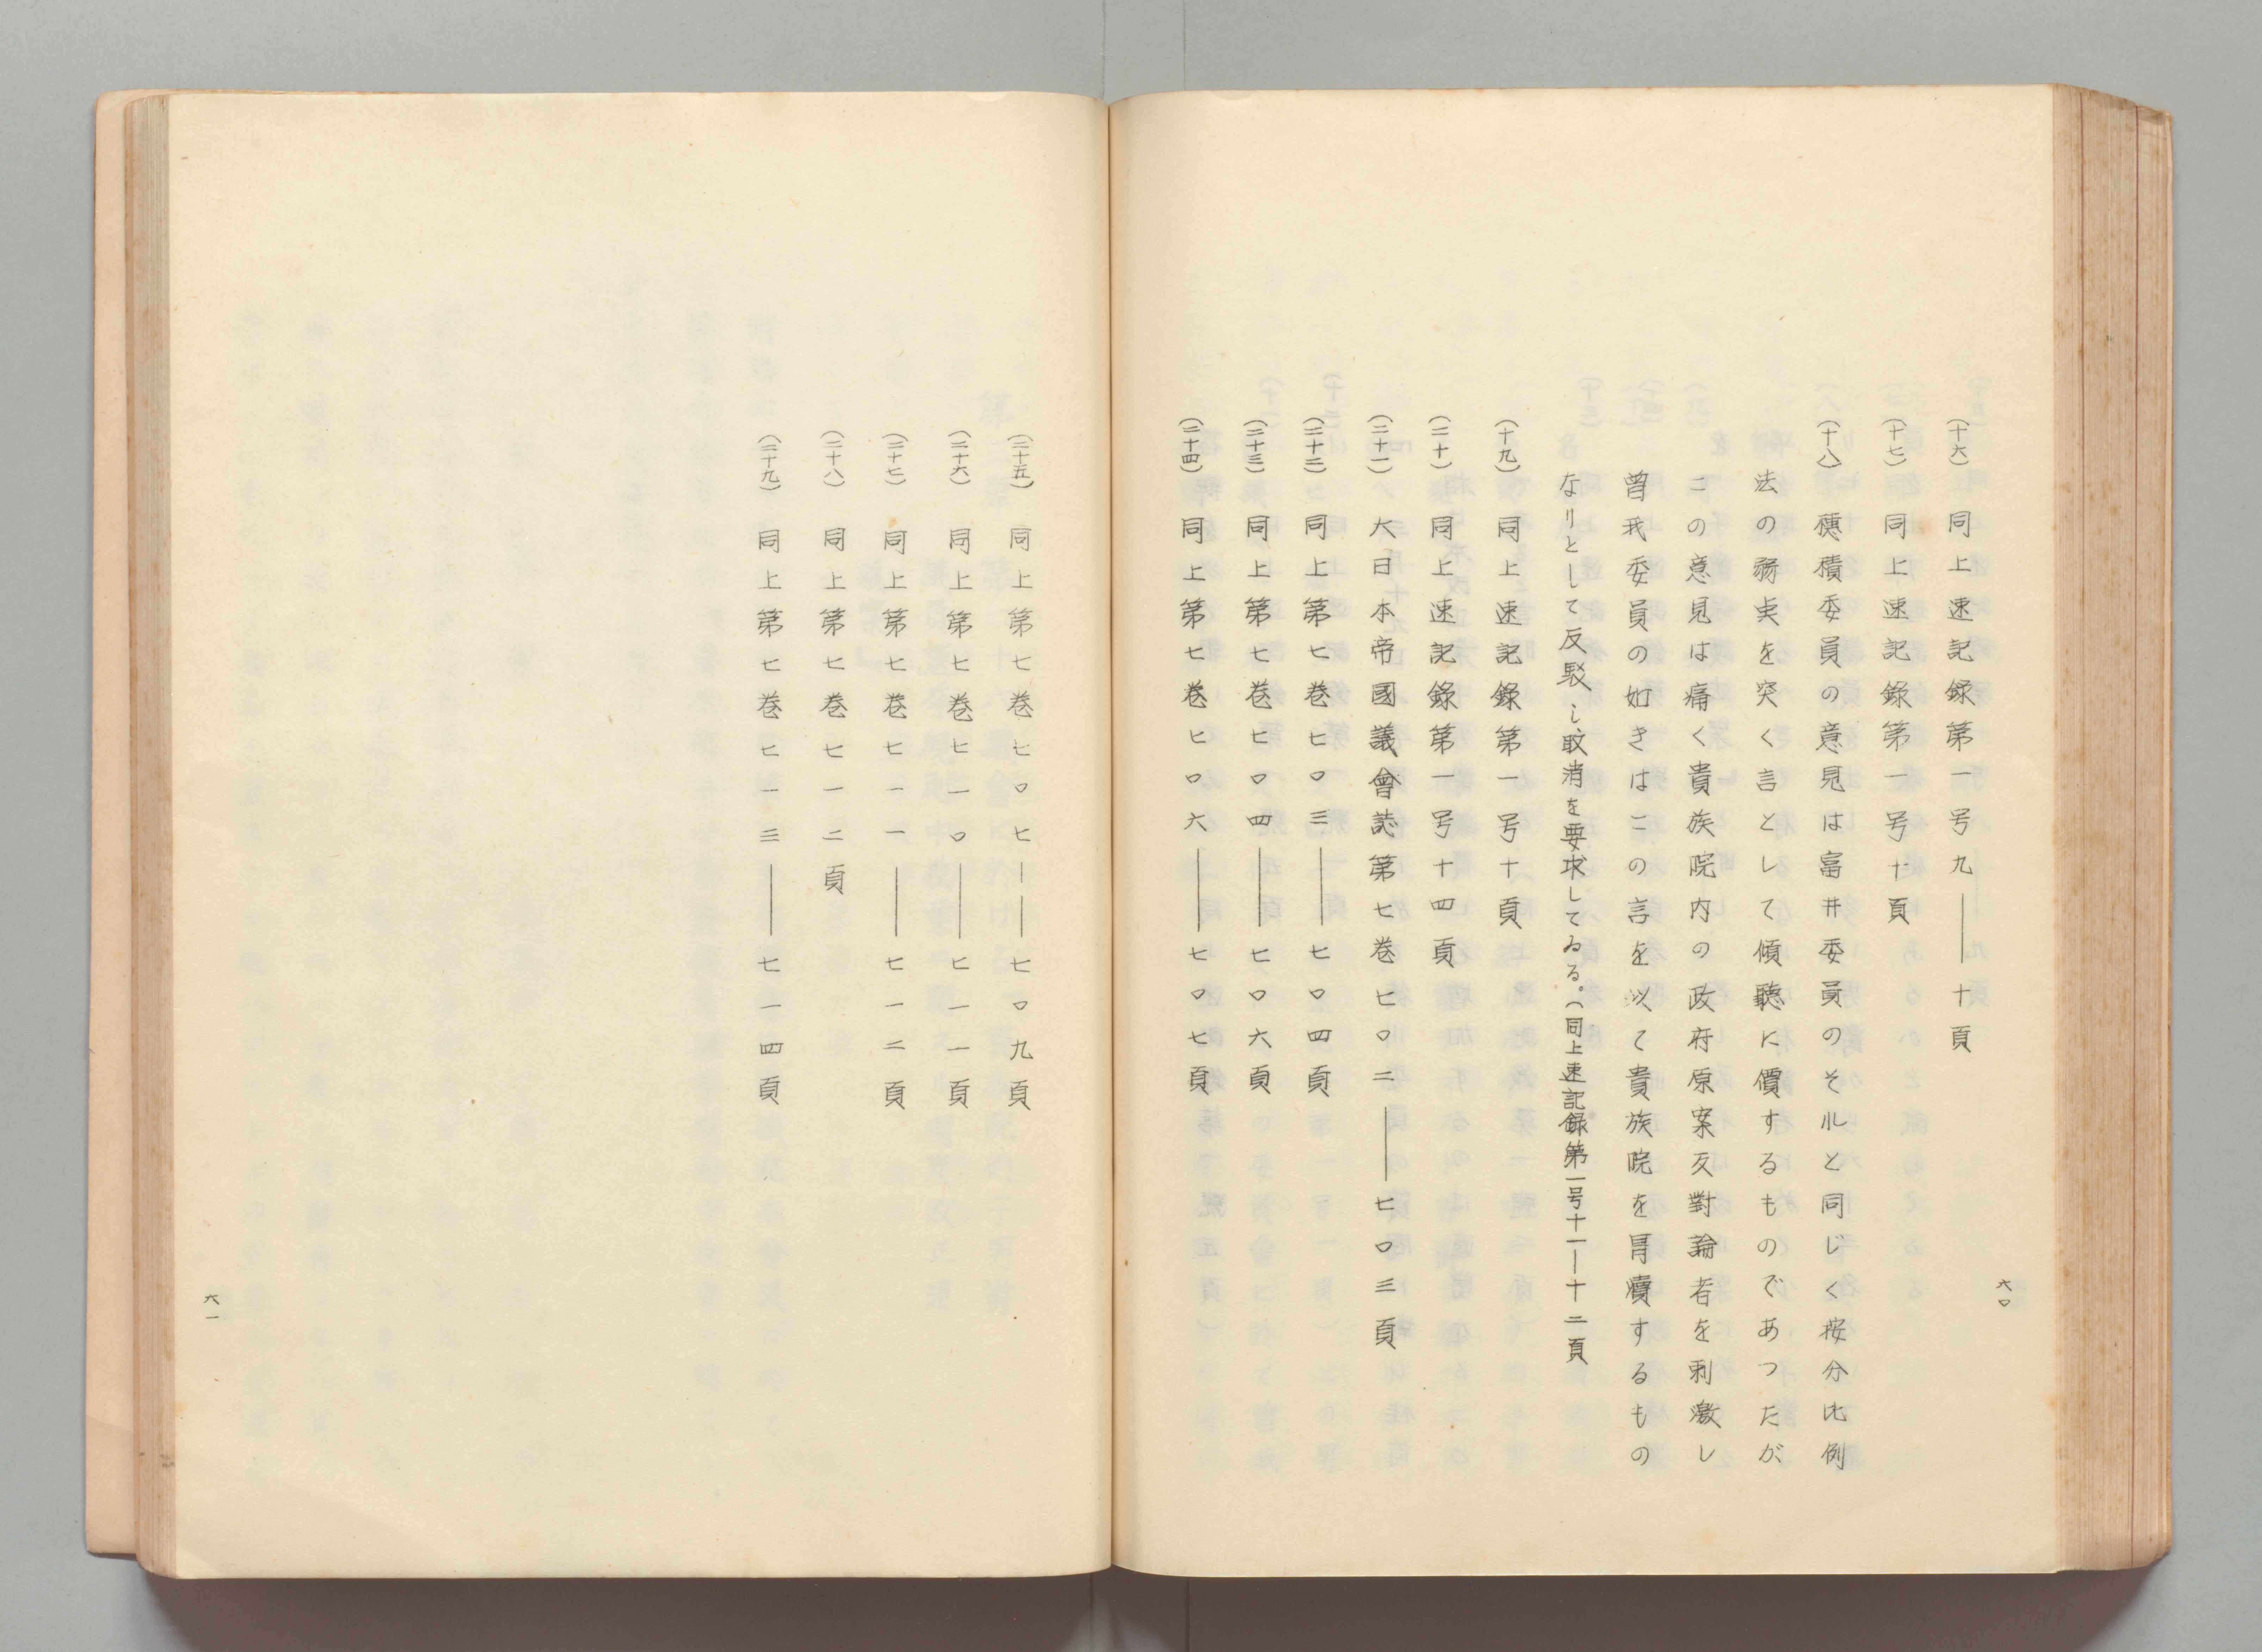 (十六) 同上速記録第一号九――十頁
(十七) 同上速記録第一号十頁
(十八) 穂積委員の意見は富井委員のそれと同じく按分比例
法の弱点を突く言として傾聴に價するものであつたが
この意見は痛く貴族院内の政府原案反對論者を刺激し
曽我委員の如きはこの言を以て貴族院を冒瀆するもの
なりとして反駁し取消を要求してゐる。(同上速記録第一号十一―十二頁
(十九) 同上速記録第一号十頁
(二十) 同上速記録第一号十四頁
(二十一) 大日本帝國議會誌第七巻七〇二――七〇三頁
(二十二) 同上第七巻七〇三――七〇四頁
(二十三) 同上第七巻七〇四――七〇六頁
(二十四) 同上第七巻七〇六――七〇七頁
六〇
(二十五) 同上第七巻七〇七――七〇九頁
(二十六) 同上第七巻七一〇――七一一頁
(二十七) 同上第七巻七一一――七一二頁
(二十八) 同上第七巻七一二頁
(二十九) 同上第七巻七一三――七一四頁
六一